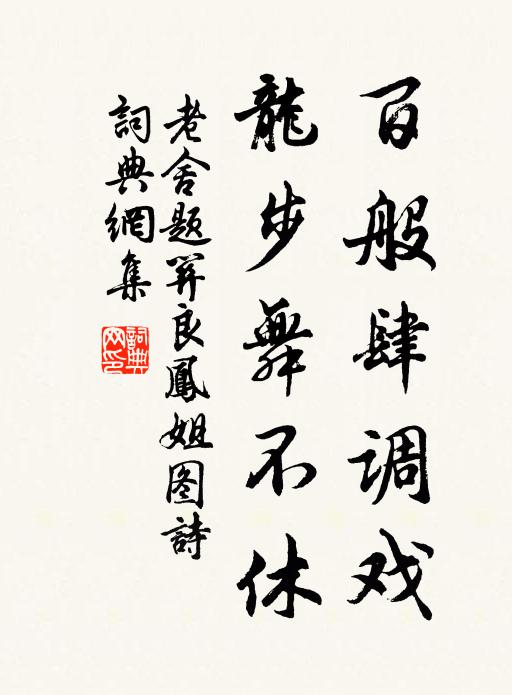 百般肆调戏
龍步舞不休
老舍题羿良鳳姐图詩
詞典網集
詞典网印